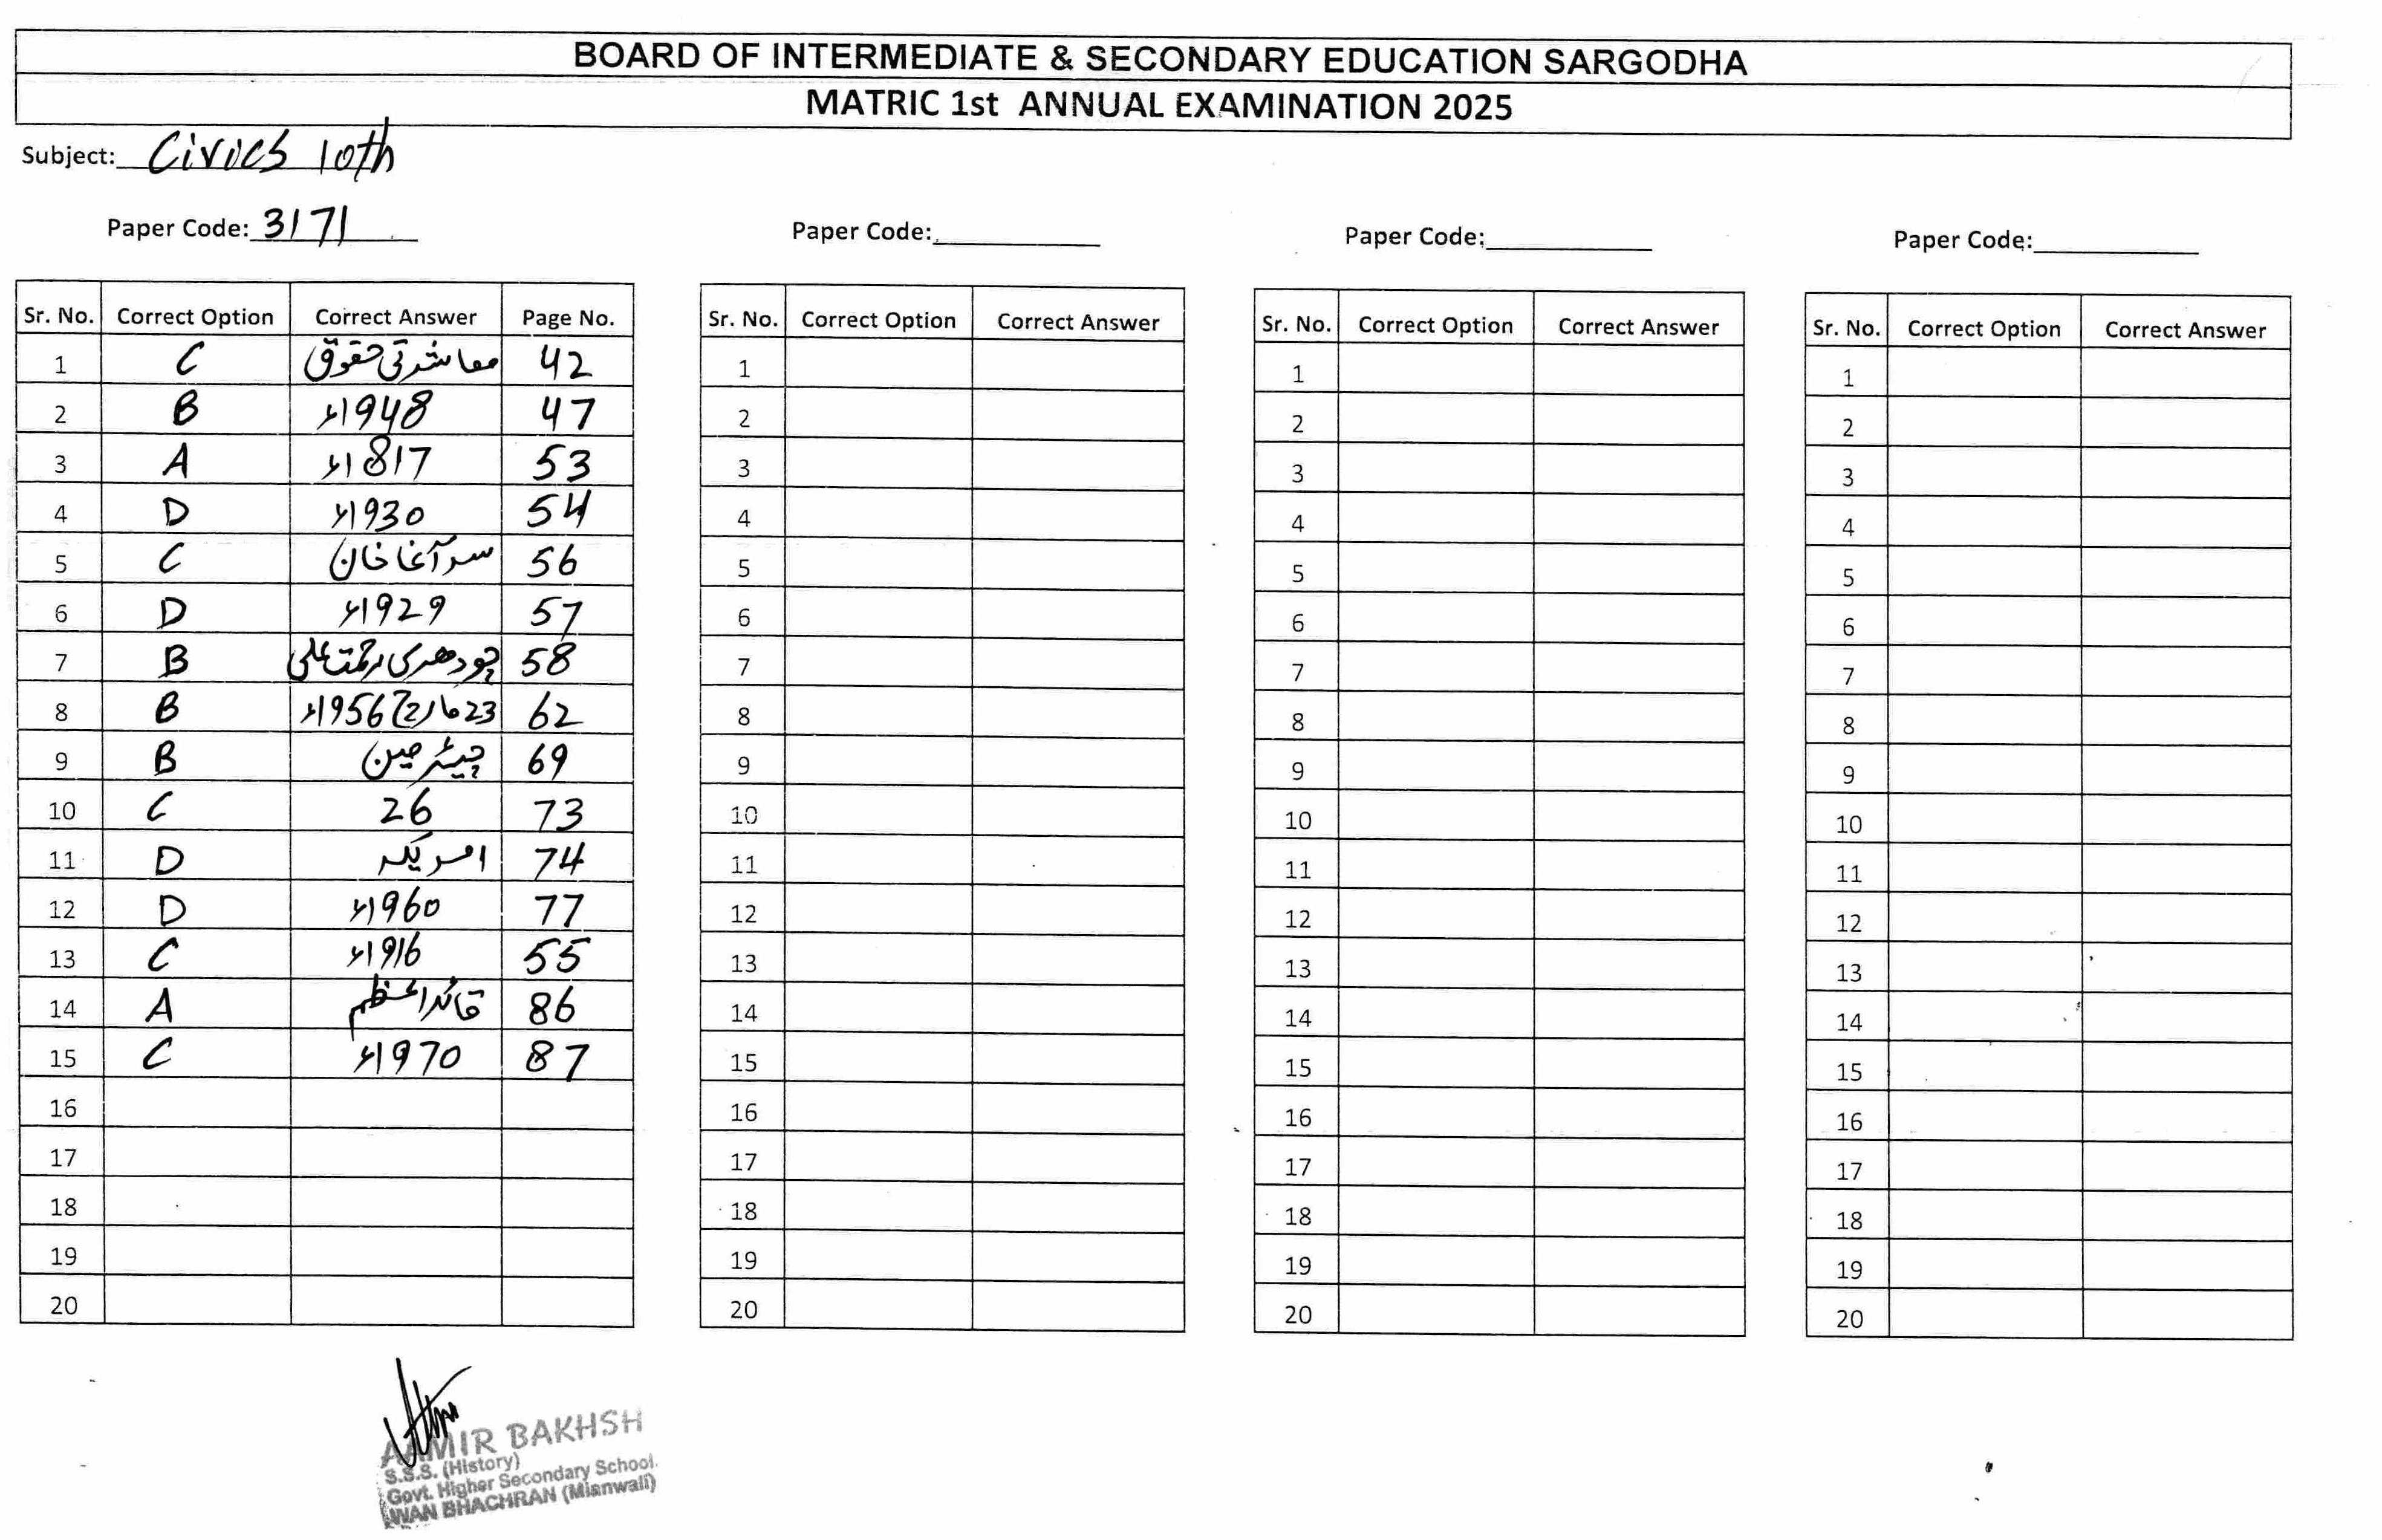 BOARD OF INTERMEDIATE & SECONDARY EDUCATION SARGODHA
MATRIC 1st ANNUAL EXAMINATION 2025
Subject: Civics 10th
Paper Code: 3171 Paper Code: Paper Code: Paper Code:
Sr. No. Correct Option Correct Answer Page No. Sr. No. Correct Option Correct Answer Sr. No. Correct Option Correct Answer Sr. No. Correct Option Correct Answer
1 C معاشرتی حقوق 42 1 1 1
2 B 1948ء 47 2 2 2
3 A 1817ء 53 3 3 3
4 D 1930ء 54 4 4 4
5 C سر آغا خان 56 5 5 5
6 D 1929ء 57 6 6 6
7 B چودھری رحمت علی 58 7 7 7
8 B 23 مارچ 1956ء 62 8 8 8
9 B چیئرمین 69 9 9 9
10 C 26 73 10 10 10
11 D امریکہ 74 11 11 11
12 D 1960ء 77 12 12 12
13 C 1916ء 55 13 13 13
14 A قائداعظم 86 14 14 14
15 C 1970ء 87 15 15 15
16 16 16 16
17 17 17 17
18 18 18 18
19 19 19 19
20 20 20 20
AAMIR BAKHSH
S.S.S. (History)
Govt. Higher Secondary School.
WAN BHACHRAN (Mianwali)